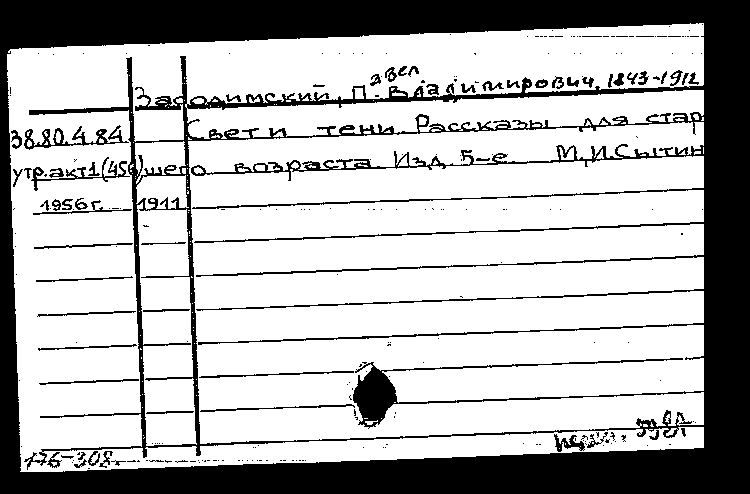 Засодимский, Павел Владимирович, 1843-1912
38.80.4.84. Свет и тени. Рассказы для стар
утр.акт1(456) шего возраста. Изд. 5-е. М., И. Сытин
1956г. 1911
176-308.